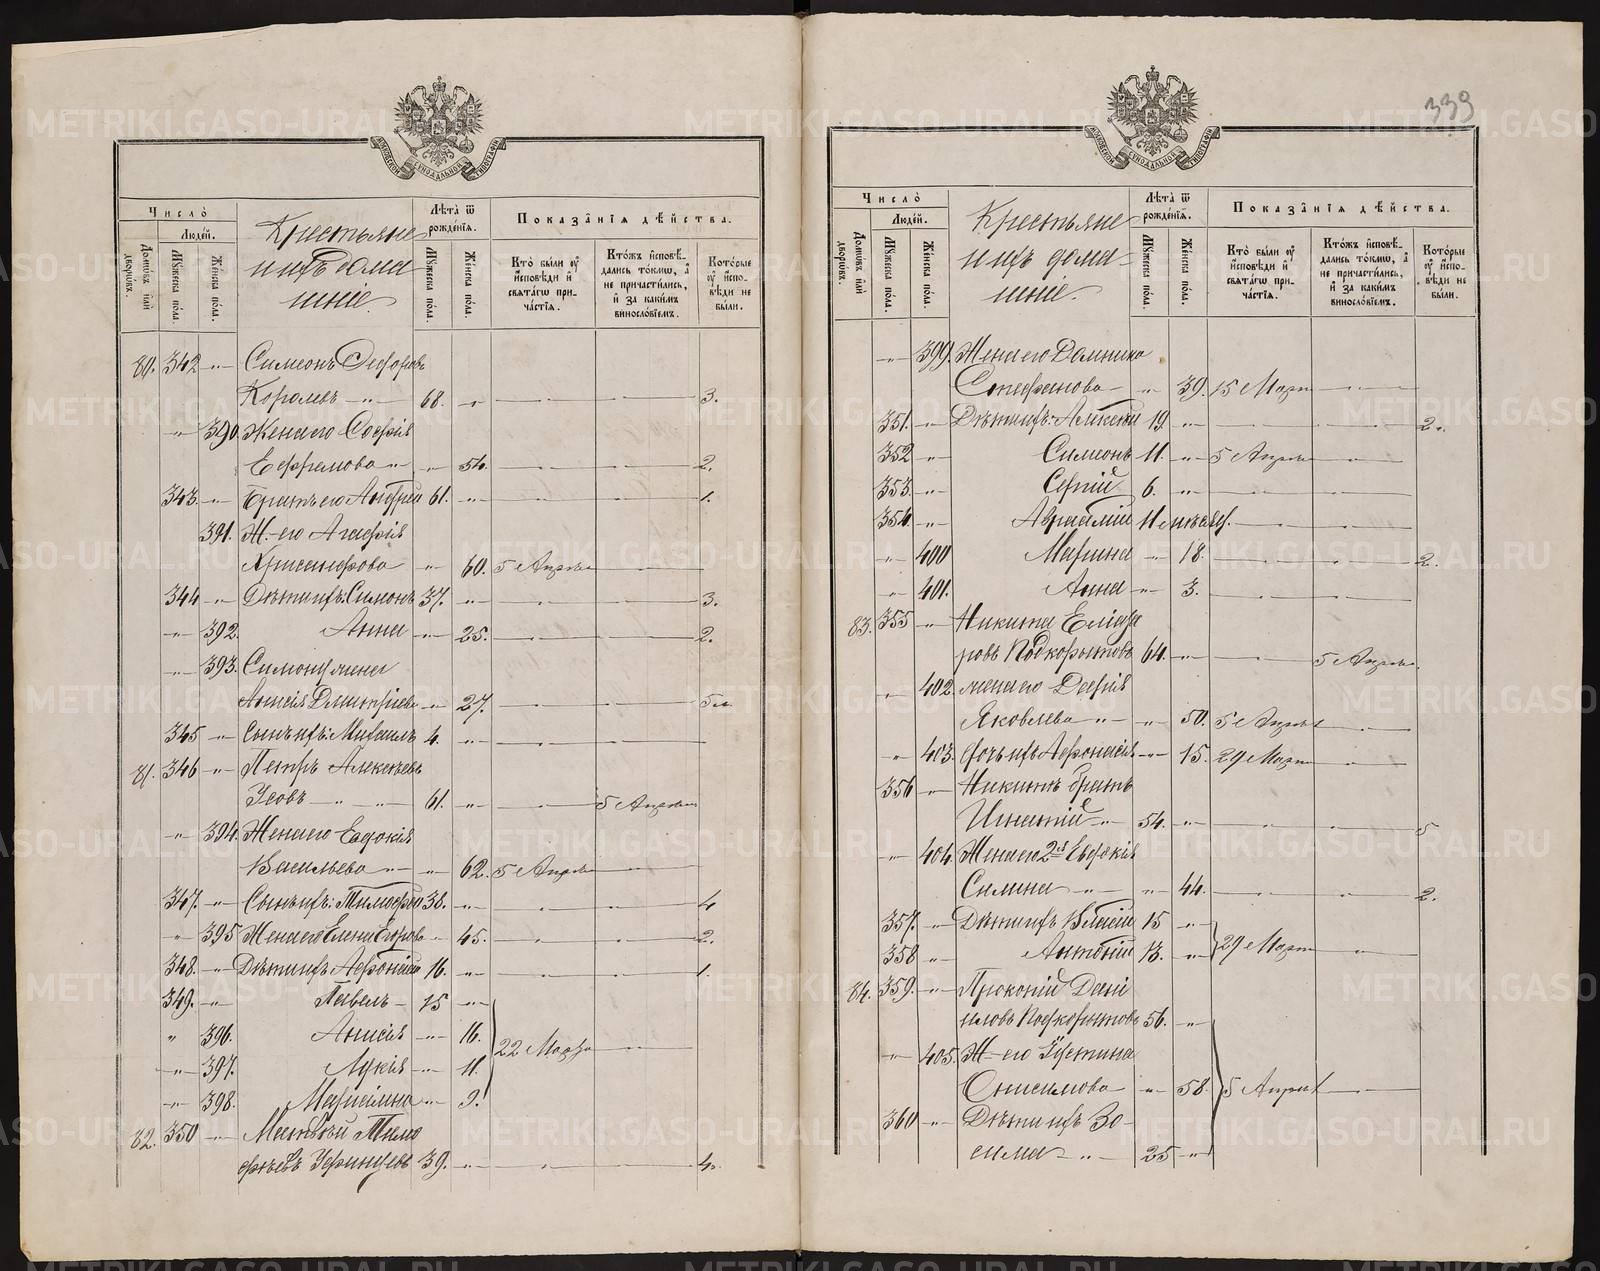 339
МОСКОВСКОЙ СѴНОДАЛЬНОЙ ТИПОГРАФІИ
Число̀
Людей.
Домѡвъ или дворѡвъ.
Мꙋжеска пола.
Женска пола.
Крестьяне
и ихъ дома
шніе.
Лѣта ѿ рожденія.
Мꙋжеска пола.
Женска пола.
Показанія дѣйства.
Кто были ᲂу҆ исповѣди и свѧтагѡ причастія.
Ктожъ исповѣдались токмѡ, а не причастились, и за какимъ винословіемъ.
Которые ᲂу҆ исповѣди не были.
80. 342 „ Симеонъ Ѳедоровъ
Королевъ „ 68. „ 3.
„ 390. Жена его Софія
Ефремова „ „ 54. 2.
343. „ Братъ его Андрей 61. „ 1.
391. Ж. его Агафія
Хрисанфова „ 60. 5 Апрѣля
344 „ Дѣти ихъ: Симонъ 37. „ 3.
„ 392. Анна „ 25. 2.
„ 393. Симона жена
Анисія Димитріева „ 27. 5
345 „ Сынъ ихъ: Михаилъ 4. „
81. 346 „ Петръ Алексѣевъ
Усовъ „ „ 61. „ 5 Апрѣля
„ 394. Жена его Евдокія
Васильева „ „ 62. 5 Апрѣля
347. „ Сынъ ихъ: Тимофей 38. „ 4
„ 395 Жена его Елена Егорова „ 45. 2.
348. „ Дѣти ихъ Афонасій 16. „ 1.
349. „ Павелъ 15 „
„ 396. Анисія „ 16. 22 Марта
„ 397. Лукія „ 11.
„ 398. Маріамна „ 9.
82. 350 „ Матвѣй Тимо
фѣевъ 39. „ 4.
Число̀
Людей.
Домѡвъ или дворѡвъ.
Мꙋжеска пола.
Женска пола.
Крестьяне
и ихъ дома
шніе.
Лѣта ѿ рожденія.
Мꙋжеска пола.
Женска пола.
Показанія дѣйства.
Кто были ᲂу҆ исповѣди и свѧтагѡ причастія.
Ктожъ исповѣдались токмѡ, а не причастились, и за какимъ винословіемъ.
Которые ᲂу҆ исповѣди не были.
„ 399. Жена его Домника
Стефанова „ 39. 15 Марта
351. „ Дѣти ихъ: Алексѣй 19 „ 2.
352 „ Симеонъ 11. „ 5 Апрѣля
353. „ Сергій 6. „
354. „ Авраамій
„ 400 Марина „ 18. 2.
„ 401. Анна „ 3.
83. 355 „ Никита Елиза
ровъ Подкорытовъ 64. „ 5 Апрѣля
„ 402. жена его Дарія
Яковлева „ „ 50. 5 Апрѣля
„ 403. дочь ихъ Афонасія „ 15. 29 Марта
356 „ Никиты братъ
Игнатій „ 54. „ 5
„ 404. Жена его 2я Евдокія
Силина „ „ 44. 2.
357. „ Дѣти ихъ Власій 15 „
358 „ Антоній 13. „ 29 Марта
84. 359. „ Прокопій Дані
иловъ Подкорытовъ 56. „
„ 405. Ж. его Устина
Онисимова „ 58. 5 Апрѣля
360 „ Дѣти ихъ Зо
сима „ 25 „
METRIKI.GASO-URAL.RU